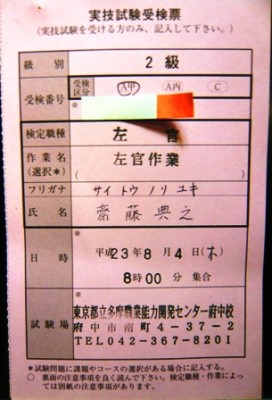 実技試験受検票
(実技試験を受ける方のみ、記入して下さい。)
級別 2級
受検番号 受検区分 A甲 A丙 C
検定職種 左官
作業名(選択*) 左官作業
フリガナ サイトウ ノリユキ
氏名 齋藤典之
日時 平成23年8月4日(木)
8時00分 集合
試験場 東京都立多摩職業能力開発センター府中校
府中市南町4-37-2
TEL042-367-8201
*試験問題に課題やコースの選択がある場合に記入する。
○ 裏面の注意事項を良く読んで下さい。検定職種・作業によっ
ては別紙の注意事項があります。